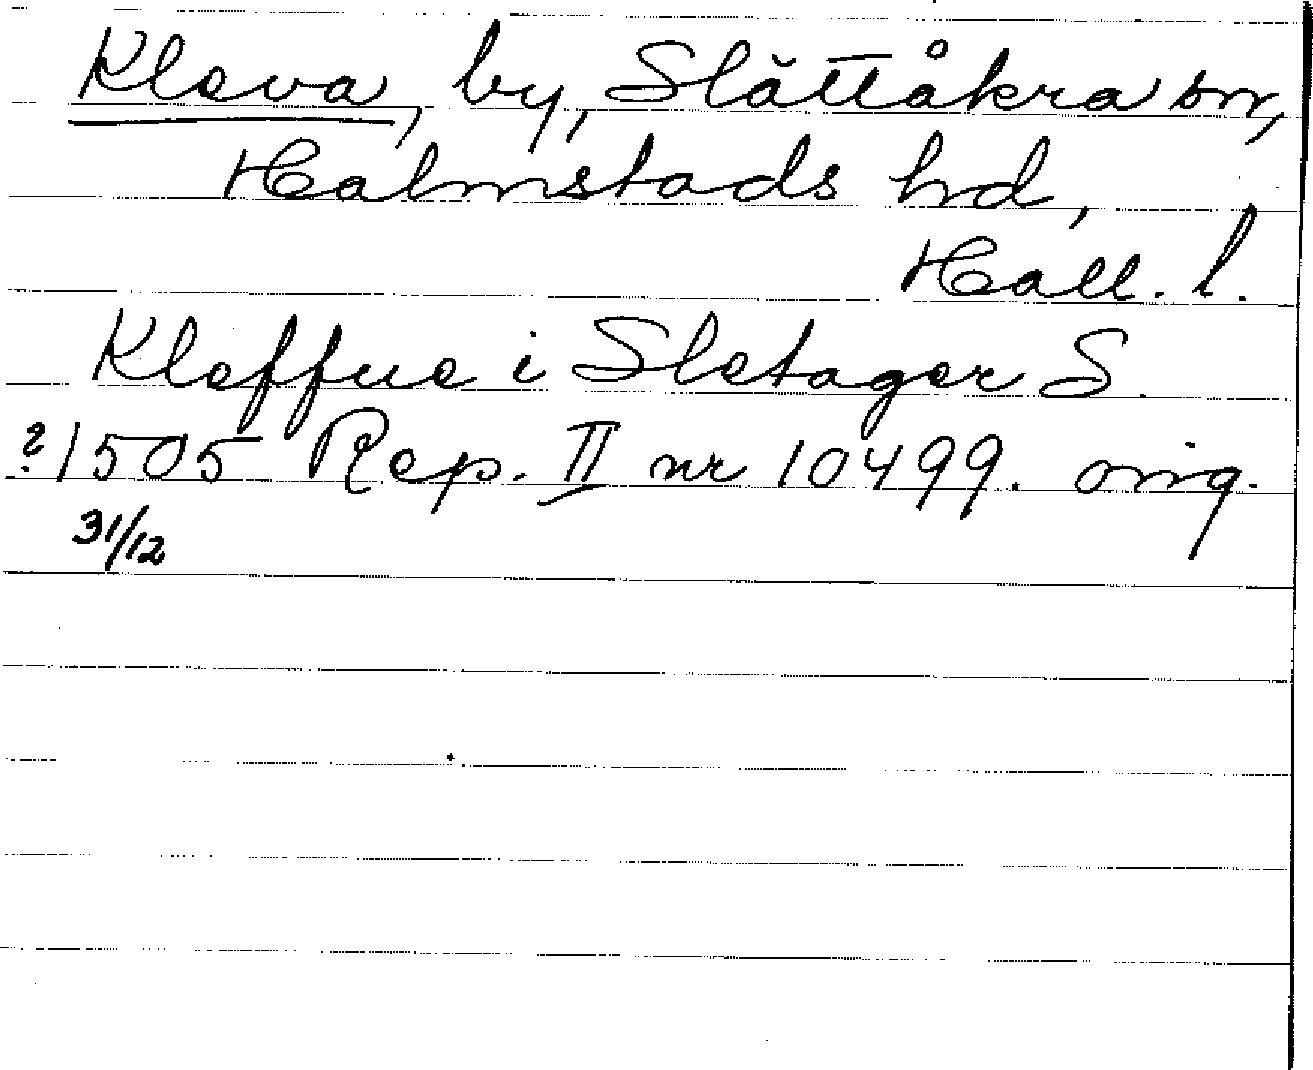 Kleva, by, Slättåkra sn,
Halmstads hd,
Hall. l.
Kleffue i Sletager S.
? 1505 Rep. II nr 10499. orig.
31/12